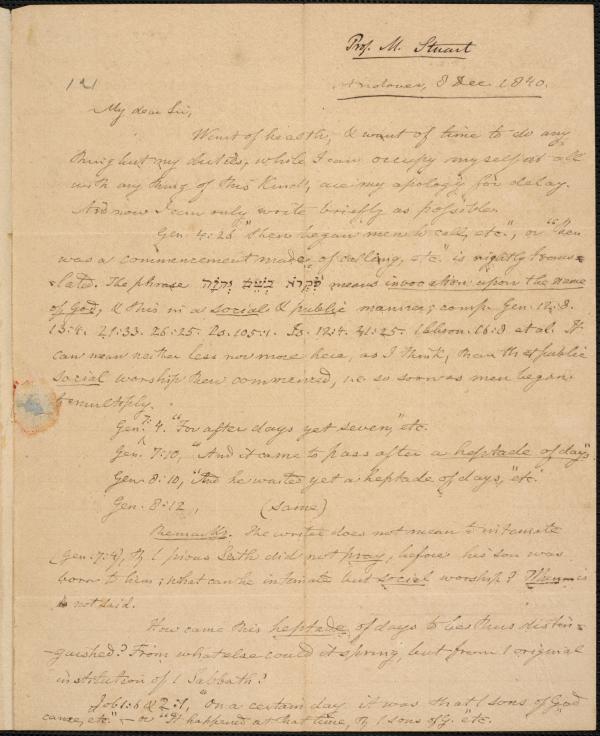 Prof. M. Stuart
121
Andover, 8 Dec. 1840.
My dear Sir,
Want of health, & want of time to do any
thing but my duties, while I can occupy myself at all
with any thing of this kind, are my apology for delay.
And now I can only write briefly as possible.
Gen. 4:26 "then began men to call, etc.", or "then
was a commencement made of calling, etc." is rightly trans-
late. The phrase בְּשֵׁם יְהוָֹה means invocation upon the name
of God, & this in a social & public manner; comp. Gen. 12:8.
13:4. 21:33. 26:25. Ps. 105:1. Is. 12:4. 41:25. 1 Chron. 16:8 et al. It
can mean neither less nor more here, as I think, than that public
social worship then commenced, i.e. so soon as men began
to multiply.
Gen. 7:4. "For after days yet seven," etc.
Gen. 7:10, "And it came to pass after a heptade of days"
Gen. 8:10, "And he waited yet a heptade of days," etc.
Gen. 8:12, (same)
Remarks. The writer does not mean to intimate
(Gen. 7:4), pious Seth did not pray, before his son was
born to him; what can he intimate but social worship? is
not said.
How came this heptade of days to be thus distin-
-guished? From what else could it spring, but from original
institution of Sabbath?
Job 1:6 & 2:1, "On a certain day it was that sons of God
came, etc." — or "It happened at that time, sons of G." etc.